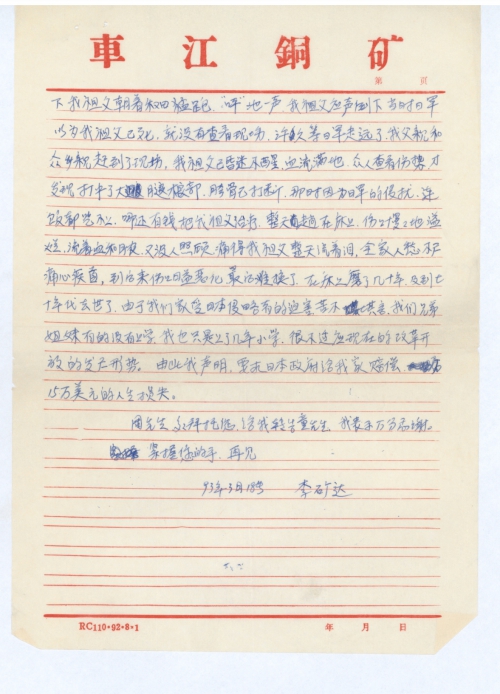 車江銅矿
第 页
下我祖父朝着 "呯"地一声 我祖父应声倒下 当时日军
以为我祖父已死, 就没有查看现场, 许久等日军走远了, 我父親和
众乡親赶到了现场, 我祖父已昏迷不醒, 血流满地, 众人查看伤势, 才
发现打中了大腿根部, 腿骨已打断, 那时因为日军的侵扰, 连
饭都吃不上, 哪还有钱把我祖父治疗, 整天躺在床上, 伤口慢慢地溢
烂, 流着血和 又没人照顾, 痛得我祖父整天流着泪, 全家人愁
痛心疾首, 到后来伤口日益恶化 在床上磨了几十年, 到七
十年代去世了, 由于我们家受日本侵略者的迫害苦不 我们兄弟
姐妹有的没有上学, 我也只是上了几年小学, 很不适应现在的改革开
放的生产形势。 由此我声明, 要求日本政府给我家赔偿
15万美元的人生损失。
周先生 请我转告童先生 我表示万分感谢。
紧握您的手, 再见
93年3月18号 李矿达
六、二
RC110·92·8·1
年 月 日